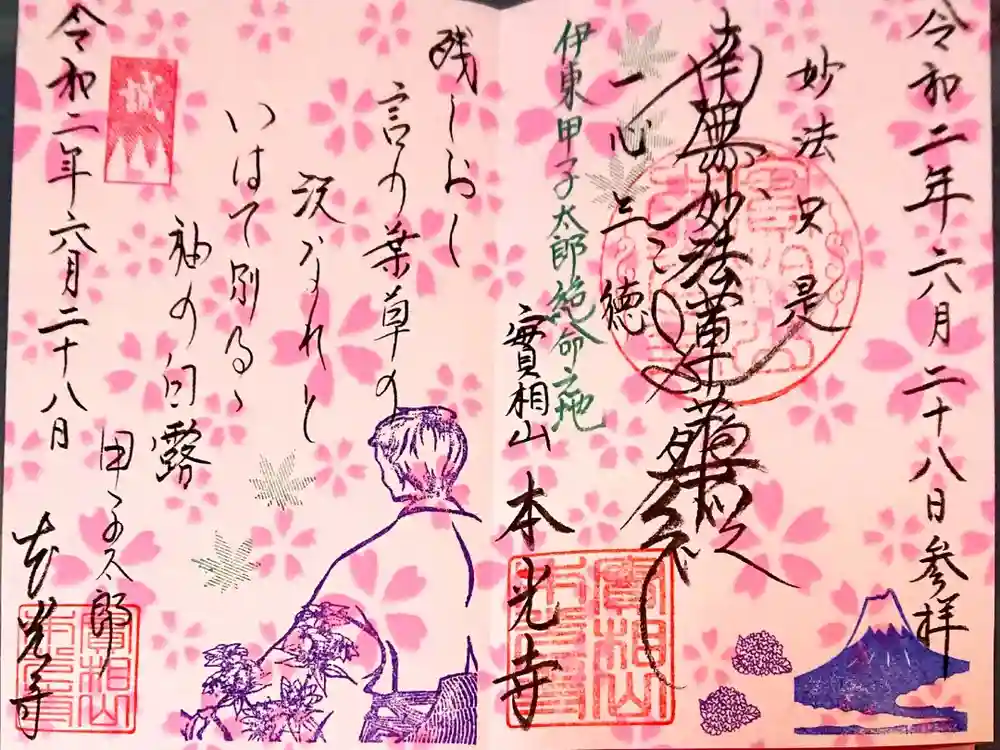 令和二年六月二十八日参拝
妙法只是
南無妙法蓮華経
一心三徳
伊東甲子太郎絶命之地
實相山
本光寺
残しおく
言の葉草の
いはで別るゝ
袖の白露
甲子太郎
誠
令和二年六月二十八日
本光寺